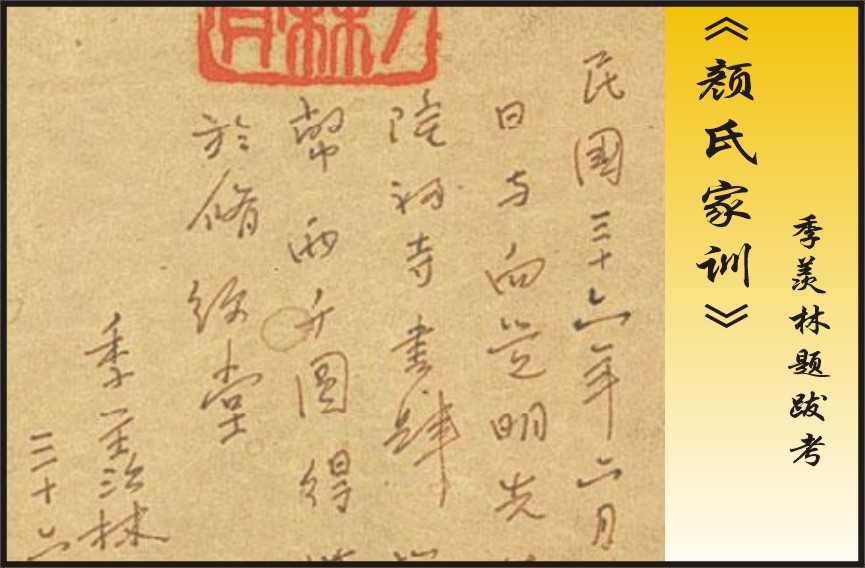 《颜氏家训》
季羡林题跋考
民國三十六年六月
日与向覺明先
隆福寺書肆
幣兩千圓得
於脩綆堂
季羡林
三十六